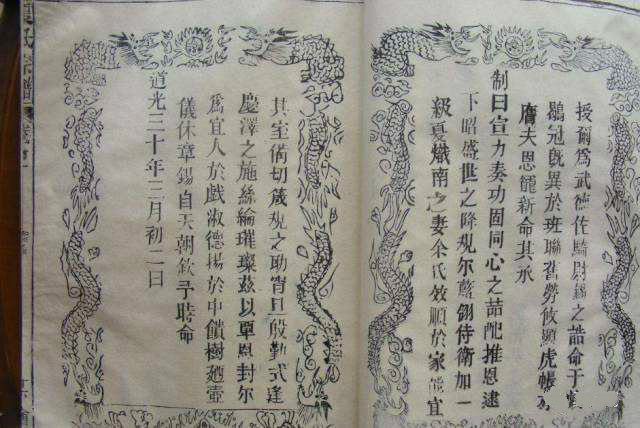 授爾為武德佐騎尉錫之誥命于戲
鶡冠既異於班聯舊勞攸顯虎帳
膺夫恩寵新命其承
制曰宣力奏功固同心之喆配推恩逮
下昭盛世之隆規尔藍翎侍衛加一
級夏熾南之妻余氏效順於家能宜
其室衿切箴規之助宵旦殷勤式逢
慶澤之施絲綸璀璨茲以覃恩封尔
為宜人於戲淑德揚於中饋樹廼壼
儀休章錫自天朝欽予時命
道光三十年三月初二日